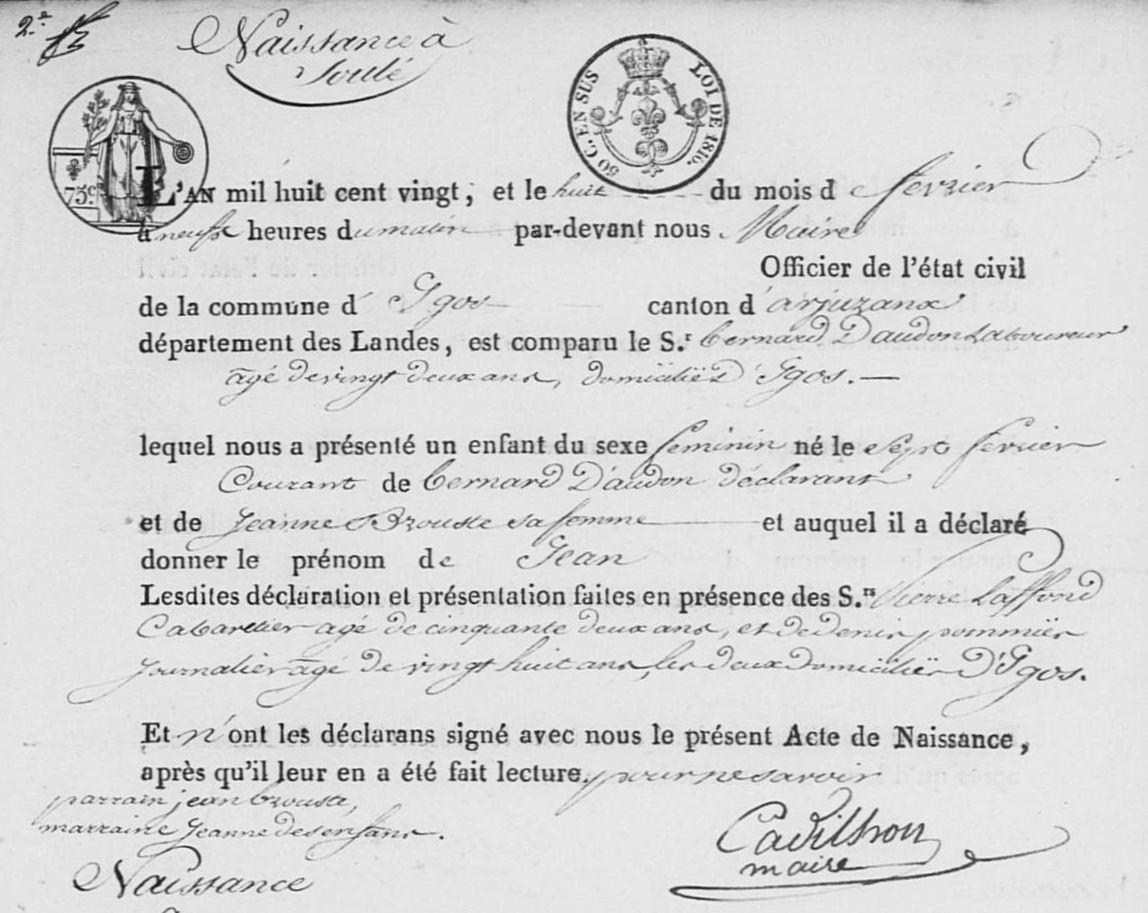 2.e
Naissance à
Soulé
50 C. EN SUS LOI DE 1816.
75c.
L'AN mil huit cent vingt, et le huit du mois de fevrier
à neufs heures du matin par-devant nous Maire
Officier de l'état civil
de la commune d'Ygos canton d'arjuzanx
département des Landes, est comparu le S.r bernard Daudon Laboureur
âgé de vingt deux ans, domicilié D'Ygos. —
lequel nous a présenté un enfant du sexe feminin né le sept fevrier
Courant de bernard D'audon déclarant
et de Jeanne Brouste sa femme et auquel il a déclaré
donner le prénom de Jean
Lesdites déclaration et présentation faites en présence des S.rs Pierre Laffond
Cabaretier agé de cinquante deux ans, et de denis pommiés
journalier âgé de vingt huit ans, les deux domiciliés D'Ygos.
Et n'ont les déclarans signé avec nous le présent Acte de Naissance,
après qu'il leur en a été fait lecture, pour ne savoir
parrain jean brouste,
marraine Jeanne desenfans.
Cadilhon
maire
Naissance